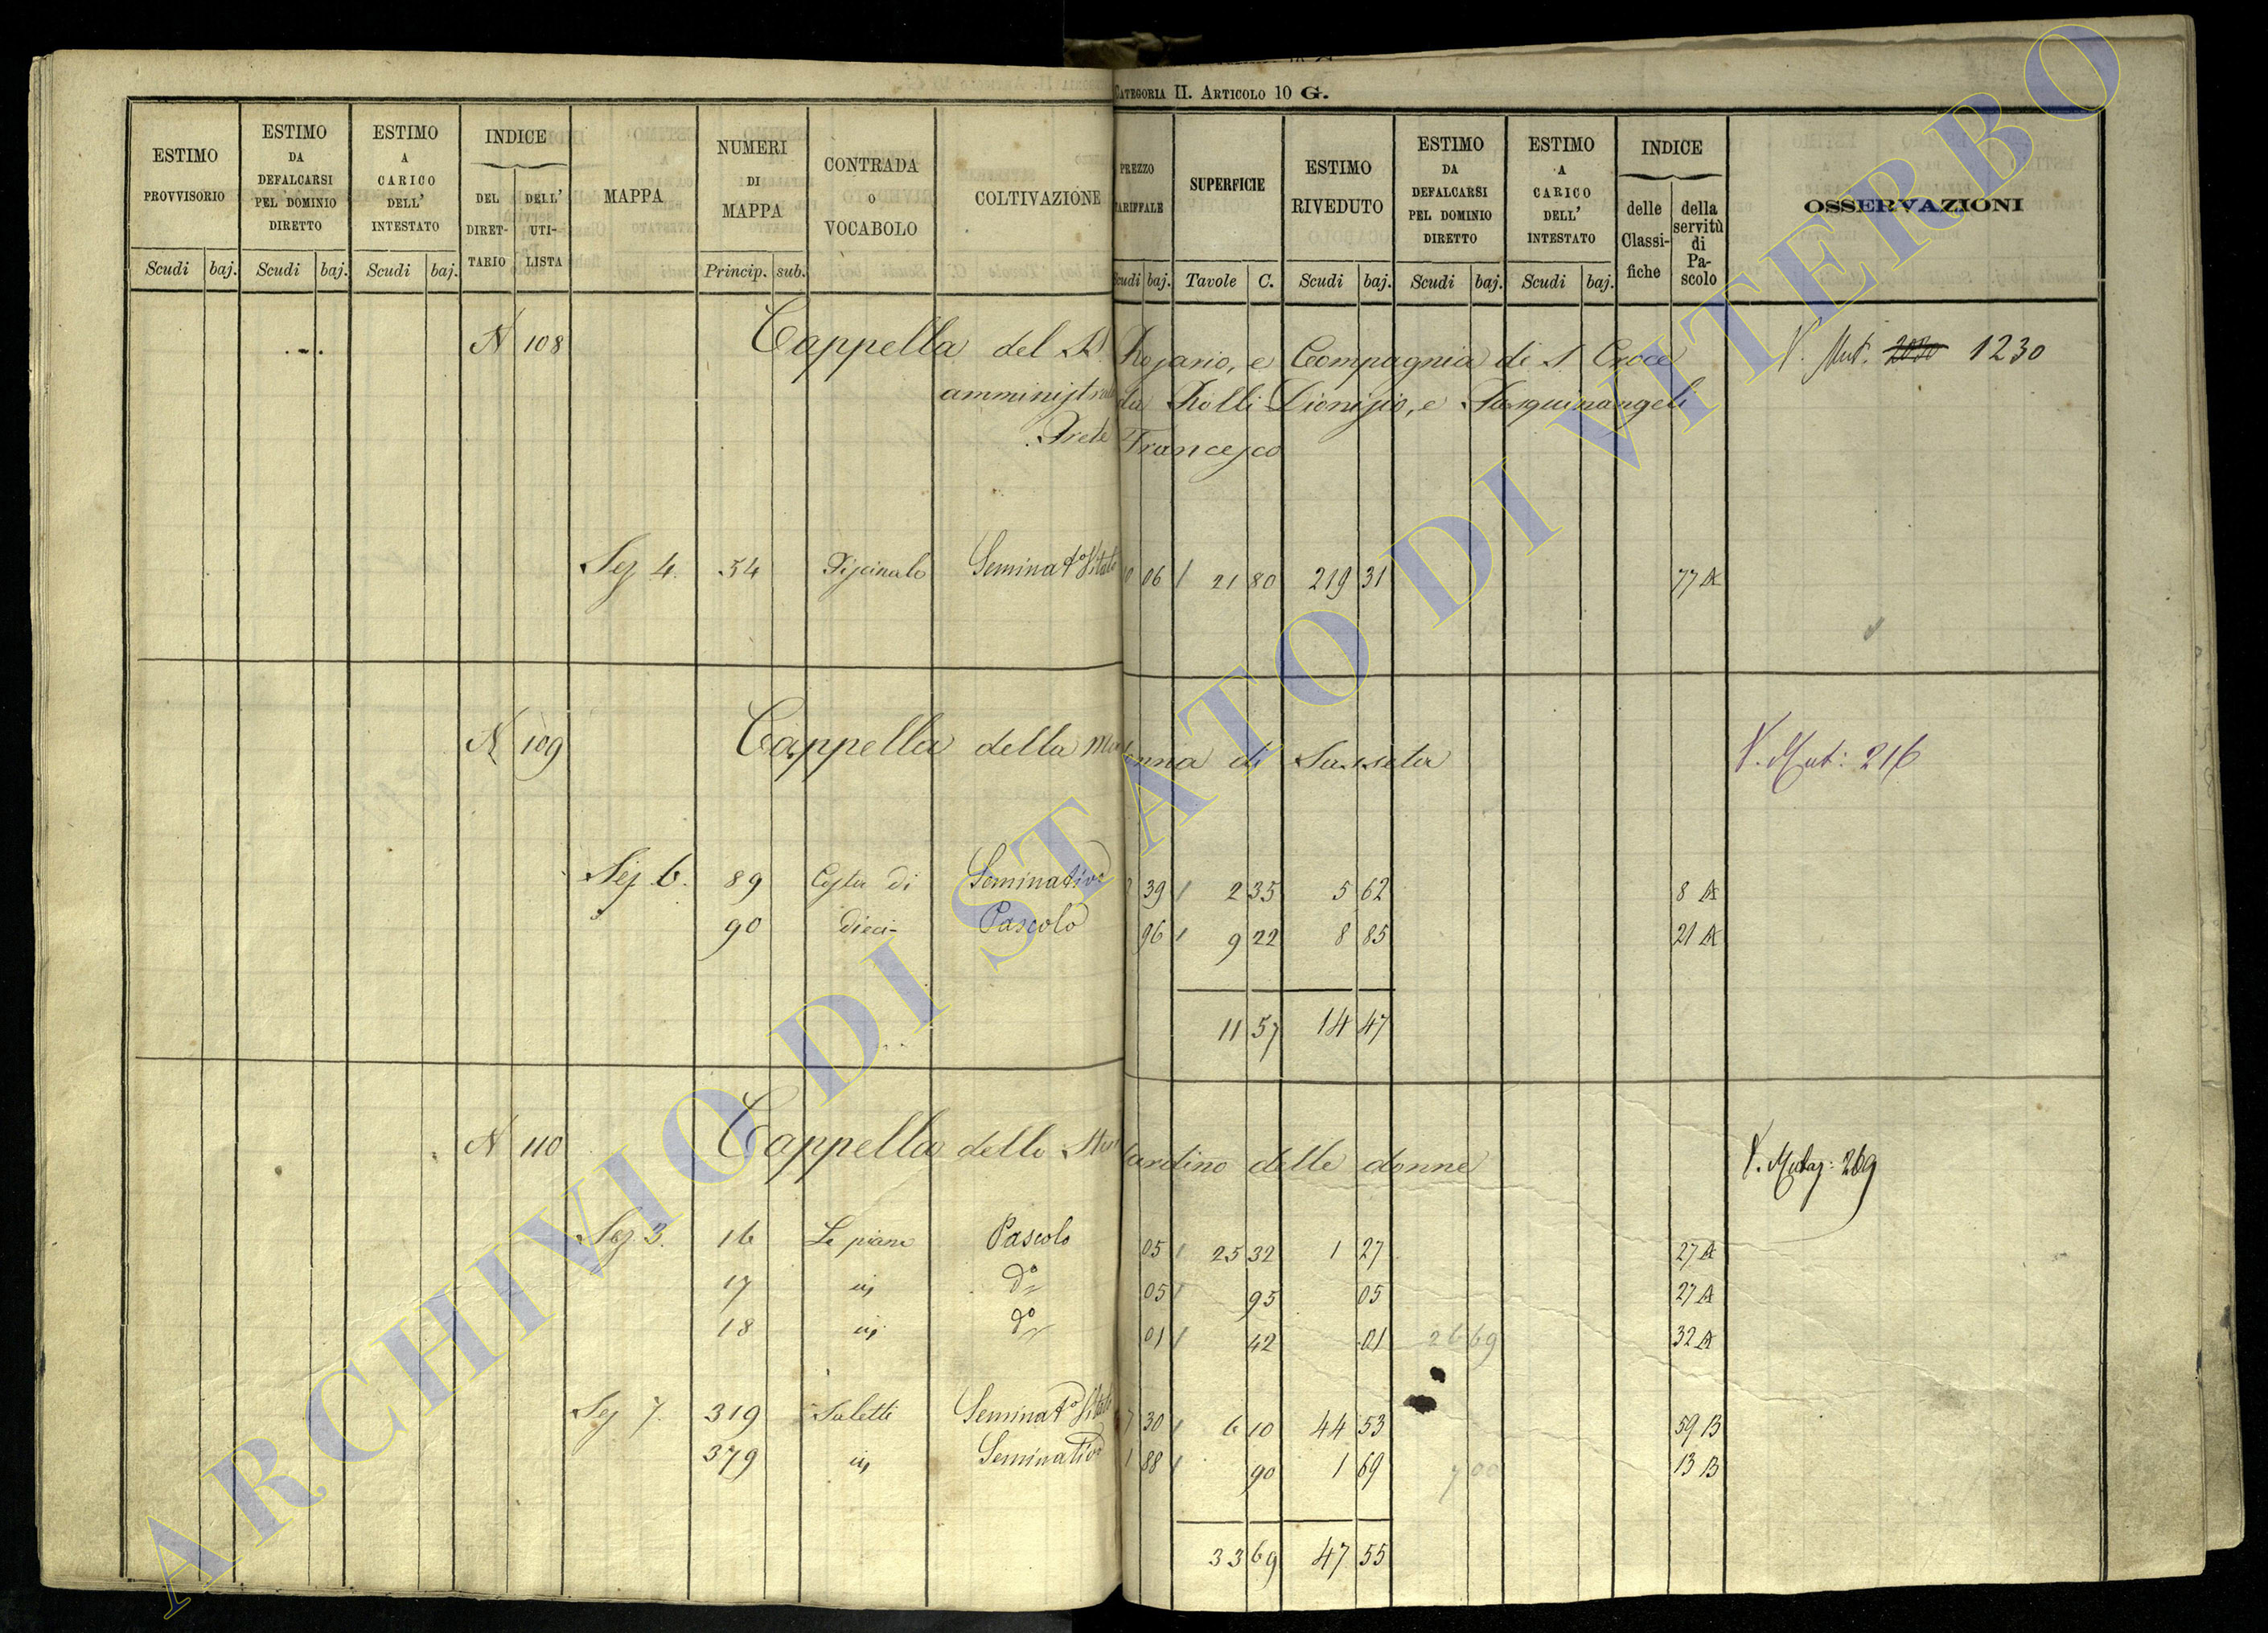 CATEGORIA II. ARTICOLO 10 G.
ESTIMO PROVVISORIO
Scudi baj.
ESTIMO DA DEFALCARSI PEL DOMINIO DIRETTO
Scudi baj.
ESTIMO A CARICO DELL' INTESTATO
Scudi baj.
INDICE
DEL DIRET-TARIO
DELL' UTI-LISTA
MAPPA
NUMERI DI MAPPA
Princip. sub.
CONTRADA O VOCABOLO
COLTIVAZIONE
PREZZO TARIFFALE
Scudi baj.
SUPERFICIE
Tavole C.
ESTIMO RIVEDUTO
Scudi baj.
ESTIMO DA DEFALCARSI PEL DOMINIO DIRETTO
Scudi baj.
ESTIMO A CARICO DELL' INTESTATO
Scudi baj.
INDICE
delle Classi-fiche
della servitù di Pa-scolo
OSSERVAZIONI
N 108 Cappella del SS. Rosario, e Compagnia di S Croce V. Mut. 1230
amministrata da Rolli Dionisio, e Pasquinangeli
Prete Francesco
Sez 4. 54 Seminat° Vitato 06 21 80 219 31 77 A
N 109 Cappella della Madonna di Sasseta V. Mut: 216
Sez 6. 89 Costa di Seminativo 39 2 35 5 62 8 A
90 dieci Pascolo 96 9 22 8 85 21 A
11 57 14 47
N 110 Cappella dello Stendardino delle donne V. Mutaz: 269
Sez 3. 16 Le piane Pascolo 05 25 32 1 27 27 A
17 d° 05 95 05 27 A
18 d° 01 42 01 26 69 32 A
Sez 7. 319 Saletti Seminat° Vitato 7 30 6 10 44 53 59 B
379 Seminativo 1 88 90 1 69 7 00 13 B
33 69 47 55
ARCHIVIO DI STATO DI VITERBO